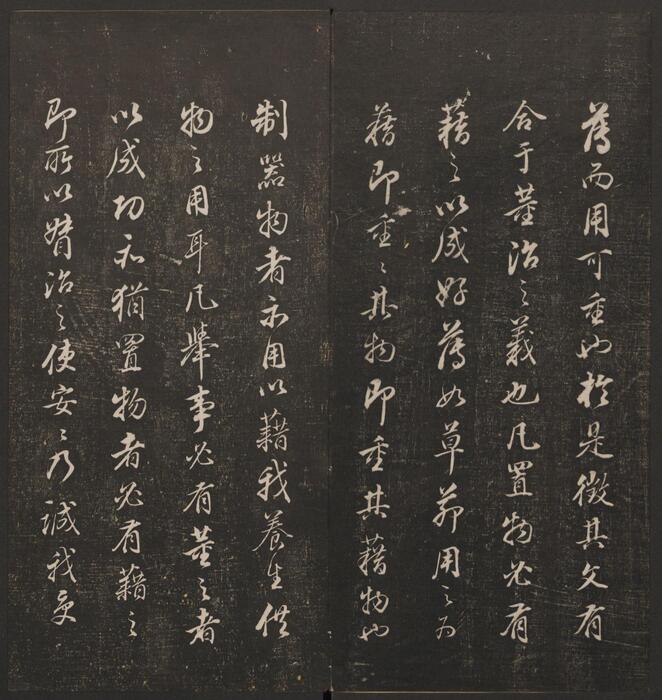 薄而用可重也於是徵其文有
合于董治之義也凡置物必有
藉之以成好薄如草茆用之為
藉即重々其物即重其藉物也
制器物者亦用以藉我養生供
物之用耳凡舉事必有董之者
以成功亦猶置物者必有藉之
即所以督治之使安々乃誠我